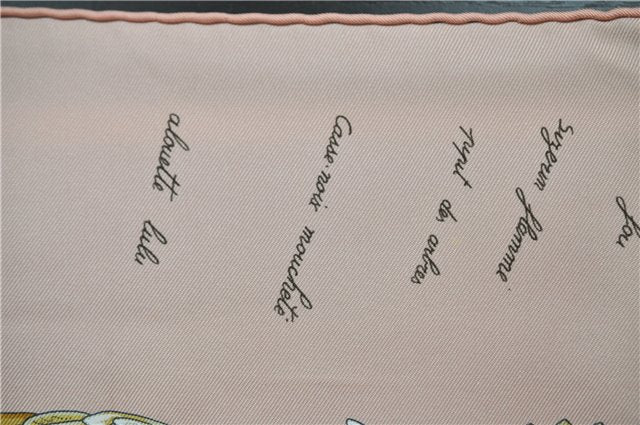 fou
Syzerin flammé
pipit des arbres
Casse-noix moucheté.
alouette lulu